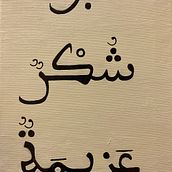 شُكْرٌ
عَزِيمَةٌ